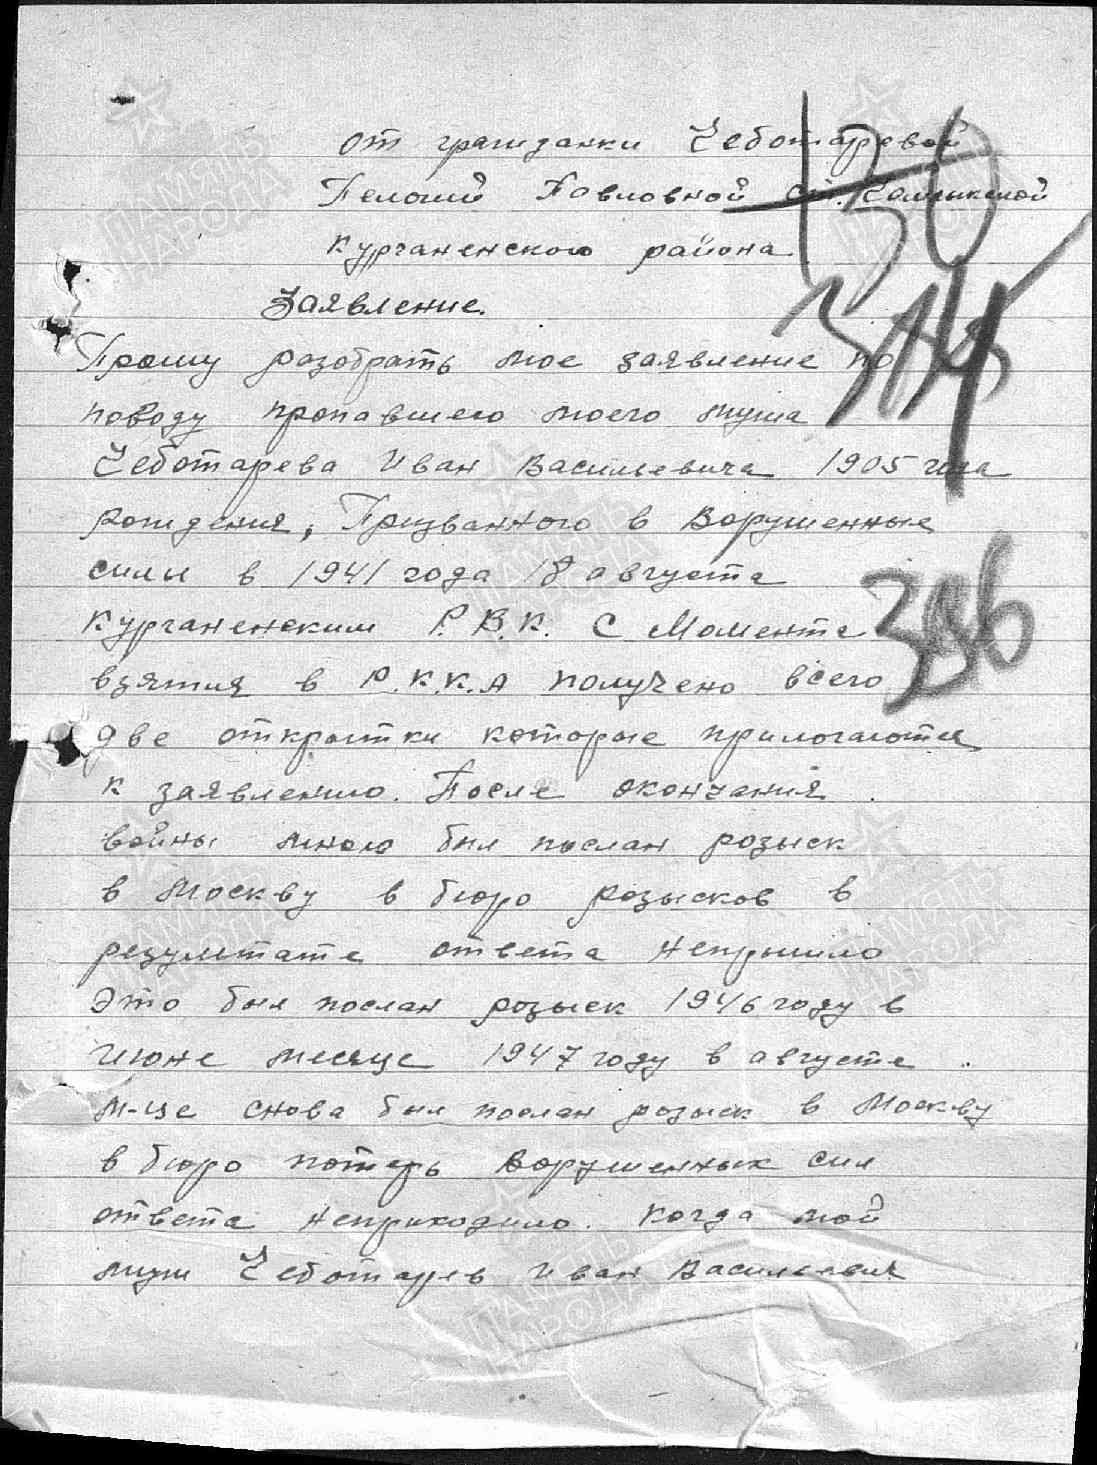 от гражданки Чеботаревой
Пелогий Павловной ст.
Курганенского района
Заявление.
Прошу разобрать мое заявление по
поводу пропавшего моего мужа
Чеботарева Иван Васильевича 1905 года
рождения, Призванного в Воруженные
силы в 1941 года 18 августа
Курганенским Р.В.К. С Момента
взятия в Р.К.К.А получено всего
две открытки которые прилогаются
к заявлению. После окончания
войны мною был послан розыск
в Москву в бюро розысков в
резултате ответа непрышло
Это был послан розыск 1946 году в
июне месяце 1947 году в августе
м-це снова был послан розыск в Москву
в бюро потерь Воруженных сил
ответа неприходило. Когда мой
муж Чеботарев Иван Васильевич
130
396
ПАМЯТЬ НАРОДА